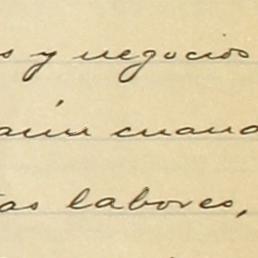 s y negocios
aún cuand
tas labores,